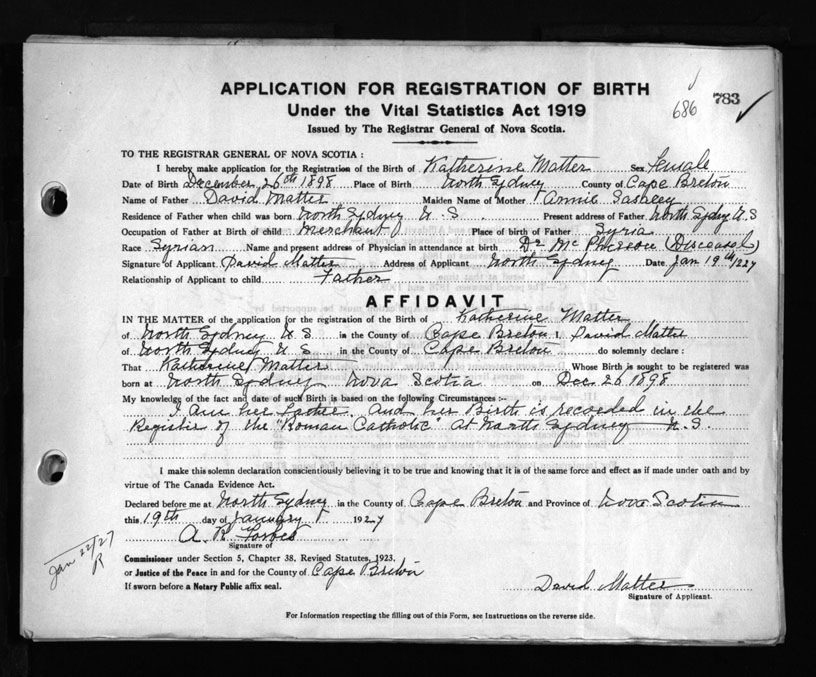 APPLICATION FOR REGISTRATION OF BIRTH
686 783
Under the Vital Statistics Act 1919
Issued by The Registrar General of Nova Scotia.
TO THE REGISTRAR GENERAL OF NOVA SCOTIA :
I hereby make application for the Registration of the Birth of Katherine Matter Sex Female
Date of Birth December 26th 1898 Place of Birth North Sydney County of Cape Breton
Name of Father David Matter Maiden Name of Mother Annie
Residence of Father when child was born North Sydney N.S. Present address of Father North Sydney N.S
Occupation of Father at Birth of child Merchant Place of birth of Father Syria
Race Syrian Name and present address of Physician in attendance at birth Dr
Signature of Applicant David Matter Address of Applicant North Sydney Date Jan 19th 1927
Relationship of Applicant to child Father
AFFIDAVIT
IN THE MATTER of the application for the registration of the Birth of Katherine Matter
of North Sydney N S in the County of Cape Breton I, David Matter
of North Sydney N S in the County of Cape Breton do solemnly declare :
That Katherine Matter Whose Birth is sought to be registered was
born at North Sydney Nova Scotia on Dec 26 1898
My knowledge of the fact and date of such Birth is based on the following Circumstances :-
I am her Father and her Birth is recorded in the
Register of the "Roman Catholic" at North Sydney N.S.
I make this solemn declaration conscientiously believing it to be true and knowing that it is of the same force and effect as if made under oath and by
virtue of The Canada Evidence Act.
Declared before me at North Sydney in the County of Cape Breton and Province of Nova Scotia
this 19th day of January 1927
A. R. Forbes
Signature of
Jan 22/27
R
Commissioner under Section 5, Chapter 38, Revised Statutes, 1923.
or Justice of the Peace in and for the County of Cape Breton
If sworn before a Notary Public affix seal.
David Matter
Signature of Applicant.
For Information respecting the filling out of this Form, see Instructions on the reverse side.